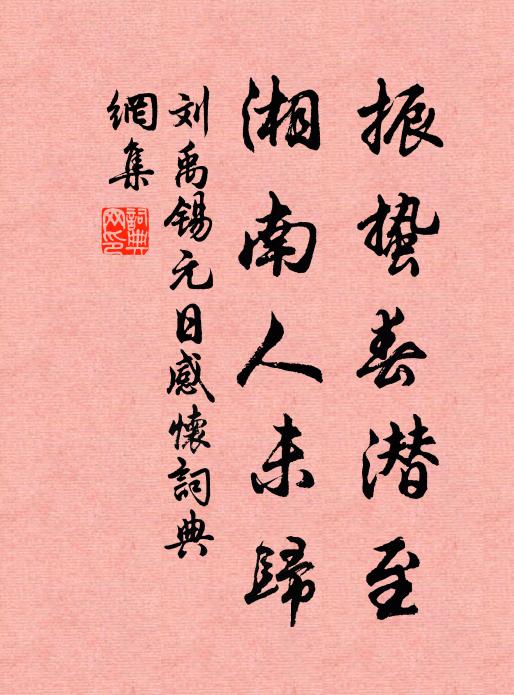 振蛰春潜至
湘南人未歸
刘禹锡元日感懷詞典
網集
詞典
网印